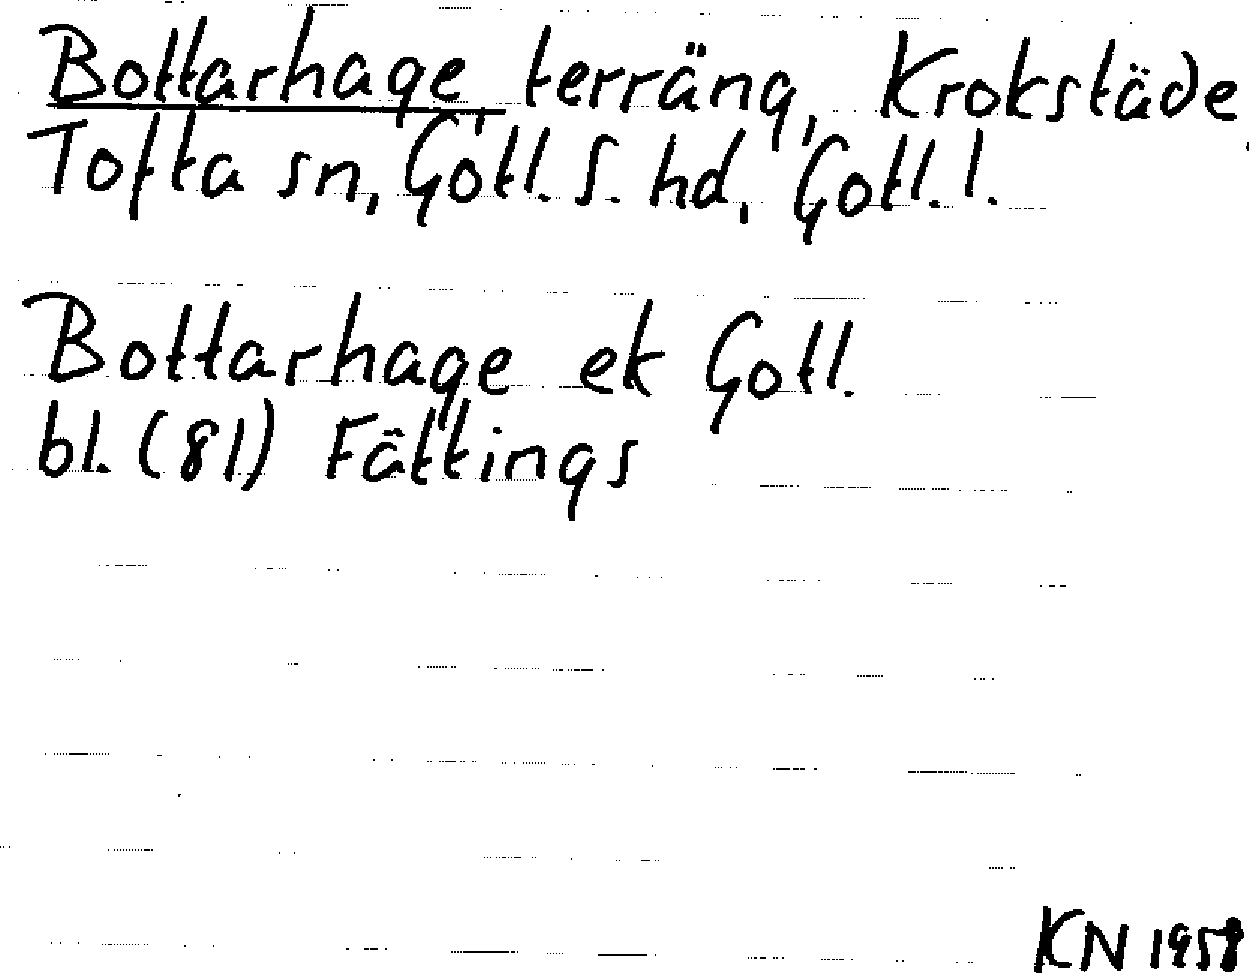 Bottarhage, terräng, Krokstäde,
Tofta sn, Gotl. S. hd, Gotl. l.
Bottarhage ek Gotl.
bl. (81) Fättings
KN 1958